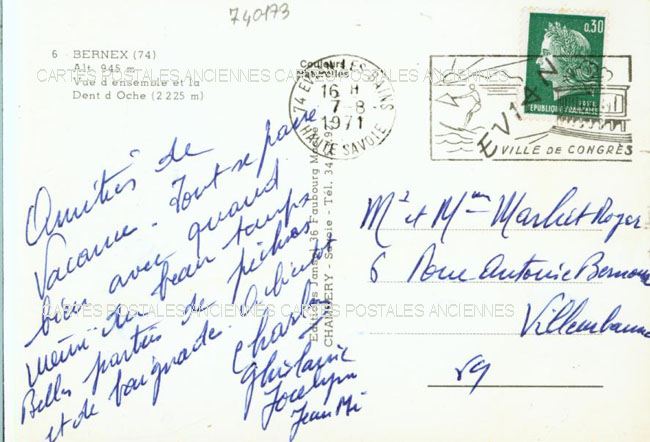 740173
6 - BERNEX (74)
Alt. 945 m
Vue d'ensemble et la
Dent d'Oche (2 225 m)
Couleurs
Naturelles
74 EVIAN LES BAINS
16 H
7-8
1971
HAUTE SAVOIE
0,30
REPUBLIQUE FRANCAISE
EVIAN
VILLE DE CONGRÈS
CARTES POSTALES ANCIENNES CARTES POSTALES ANCIENNES CARTES POSTALES ANCIENNES
Amitiés de
Vacance. Tout se passe
bien avec quand
même du beau temps
Belles parties de pêches
et de baignade. A bientôt
Charles
Ghislaine
Jocelyne
Jean Mi
Editions Jansol, 36 Faubourg
CHAMBERY - Savoie - Tél. 34
Mr et Mme Marliet Roger
6 Rue Antoine
Villeurbanne
69
CARTES POSTALES ANCIENNES CARTES POSTALES ANCIENNES